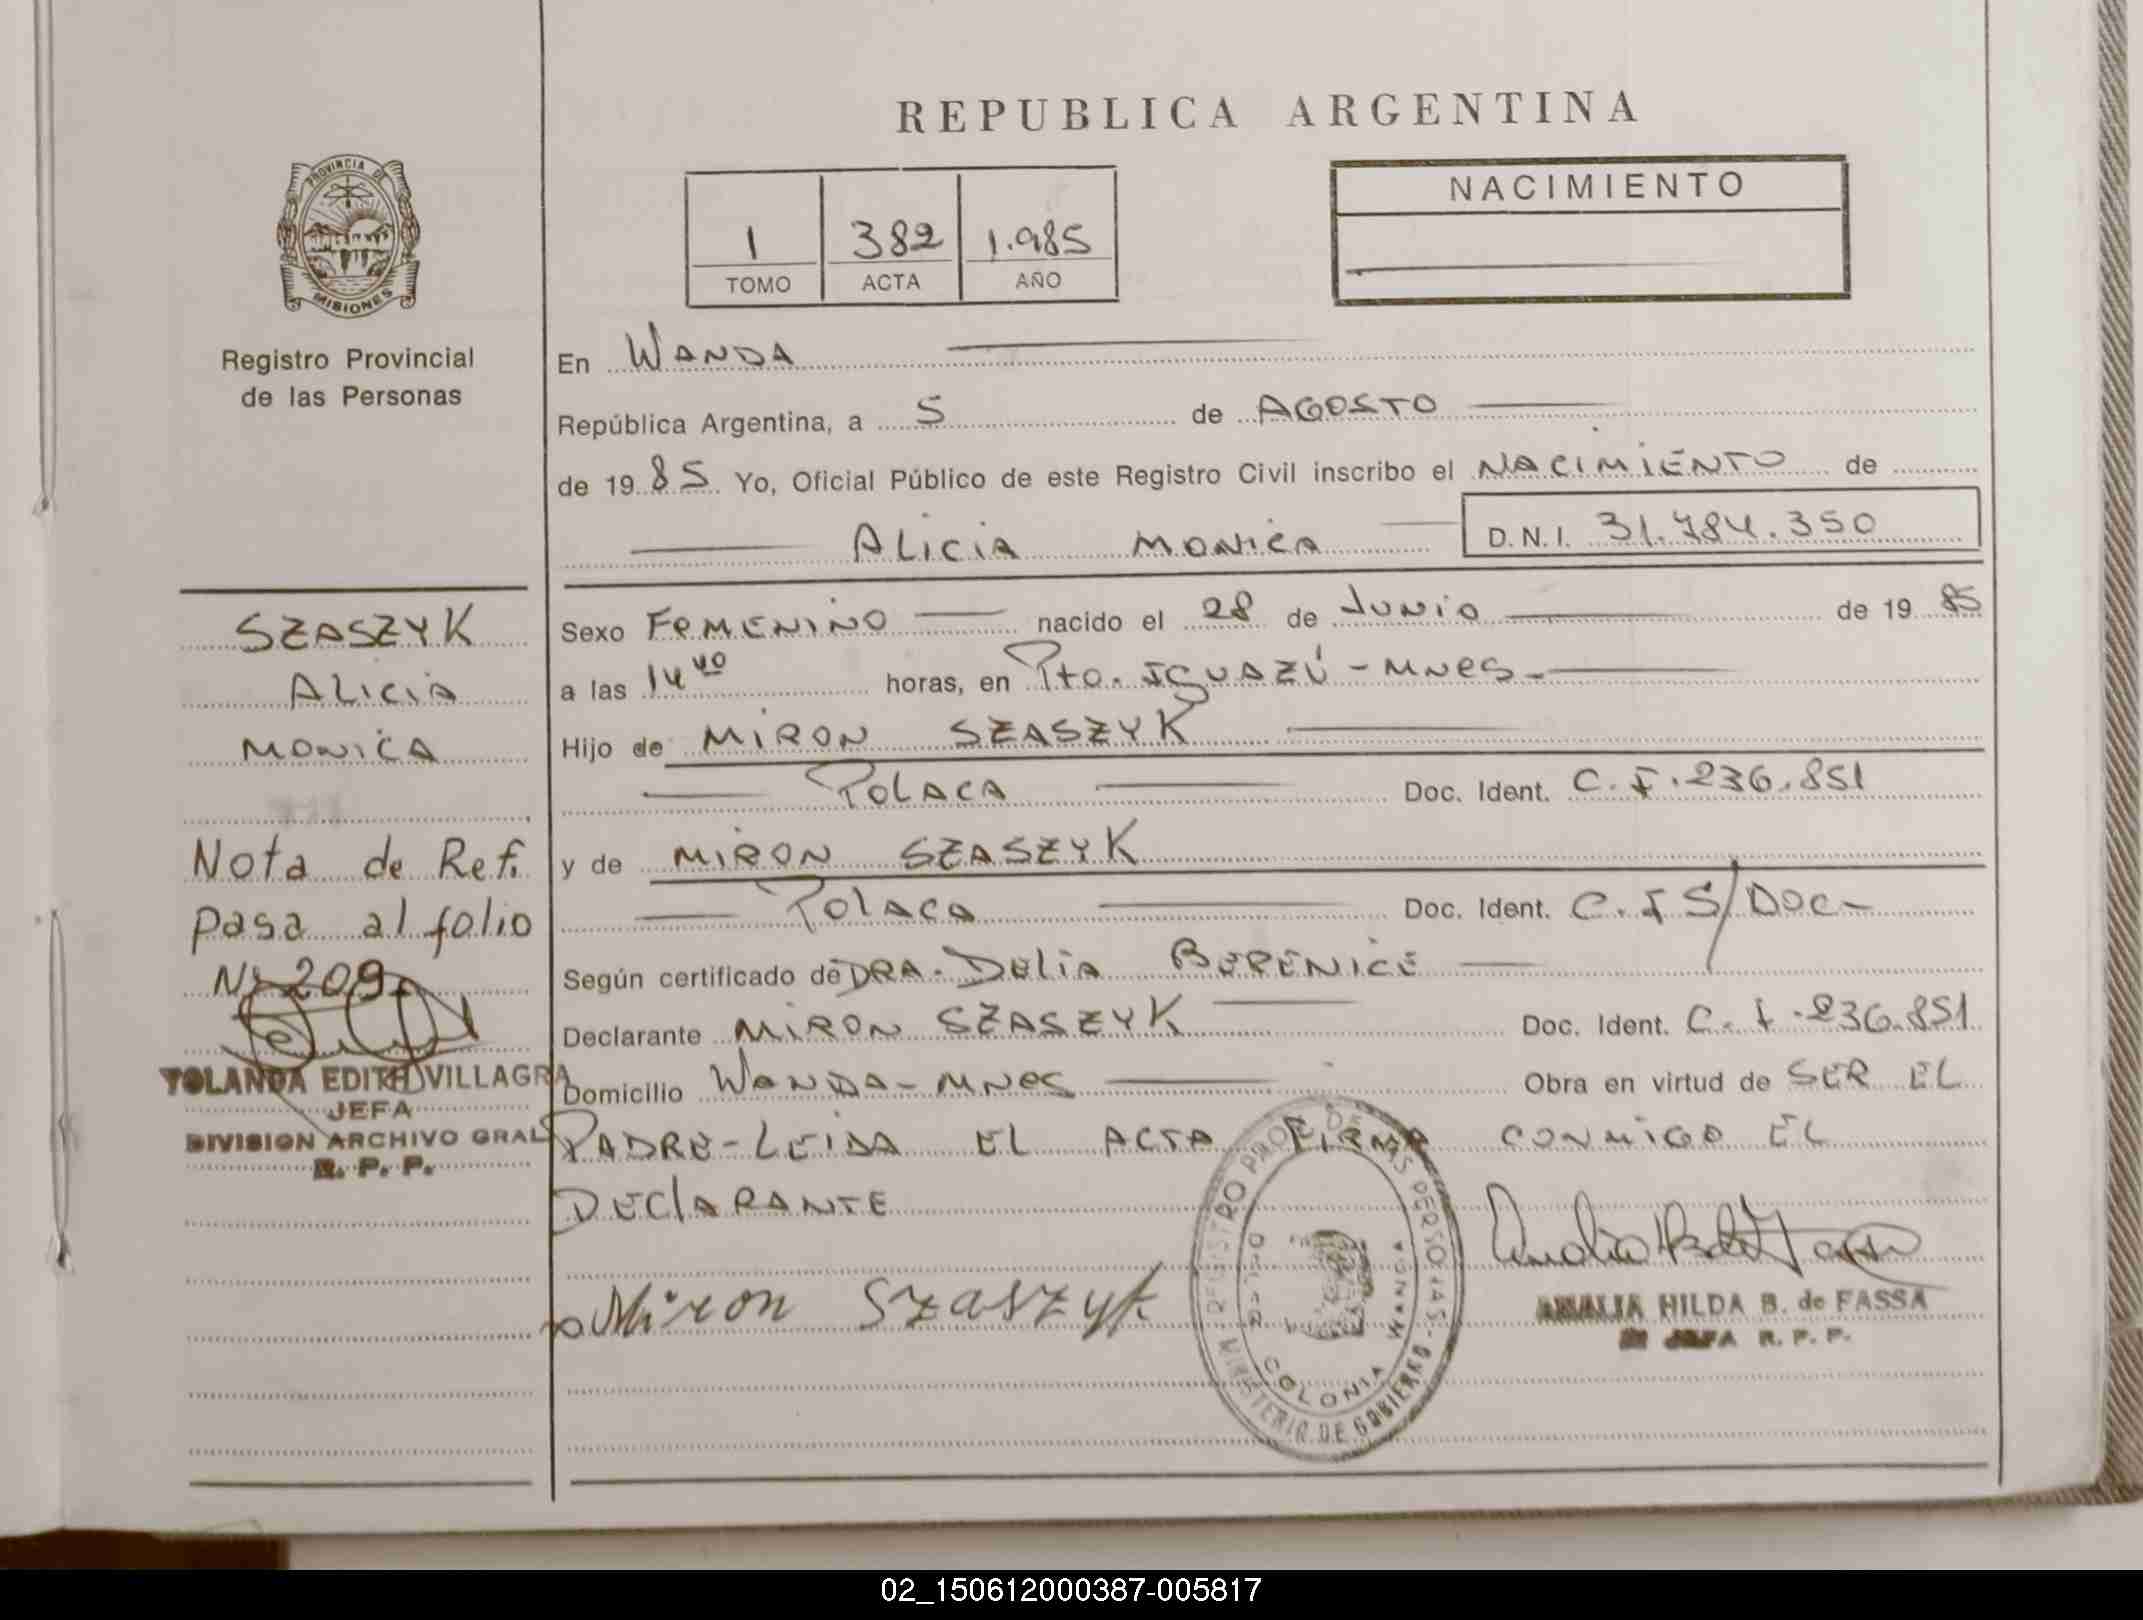 REPUBLICA ARGENTINA
PROVINCIA DE
MISIONES
Registro Provincial
de las Personas
1 382 1.985
TOMO ACTA AÑO
NACIMIENTO
En WANDA
República Argentina, a 5 de AGOSTO
de 1985 Yo, Oficial Público de este Registro Civil inscribo el NACIMIENTO de
ALICIA MONICA D.N.I. 31.784.350
Sexo FEMENINO nacido el 28 de JUNIO de 1985
a las 14 40 horas, en Pto. IGUAZÚ - MNES -
Hijo de MIRON SZASZYK
POLACA Doc. Ident. C.I. 236.851
y de MIRON SZASZYK
POLACA Doc. Ident. C.I S/DOC-
Según certificado de DRA. DELIA BERENICE
Declarante MIRON SZASZYK Doc. Ident. C.I. 236.851
Domicilio WANDA - MNES Obra en virtud de SER EL
PADRE - LEIDA EL ACTA FIRMA CONMIGO EL
DECLARANTE
Miron Szaszyk
AMALIA HILDA B. de FASSA
JEFA R. P. P.
REGISTRO PROV. DE LAS PERSONAS - MINISTERIO DE GOBIERNO
COLONIA WANDA
SZASZYK
ALICIA
MONICA
Nota de Ref.
pasa al folio
Nº 209
YOLANDA EDITH VILLAGRA
JEFA
DIVISION ARCHIVO GRAL
R. P. P.
02_150612000387-005817